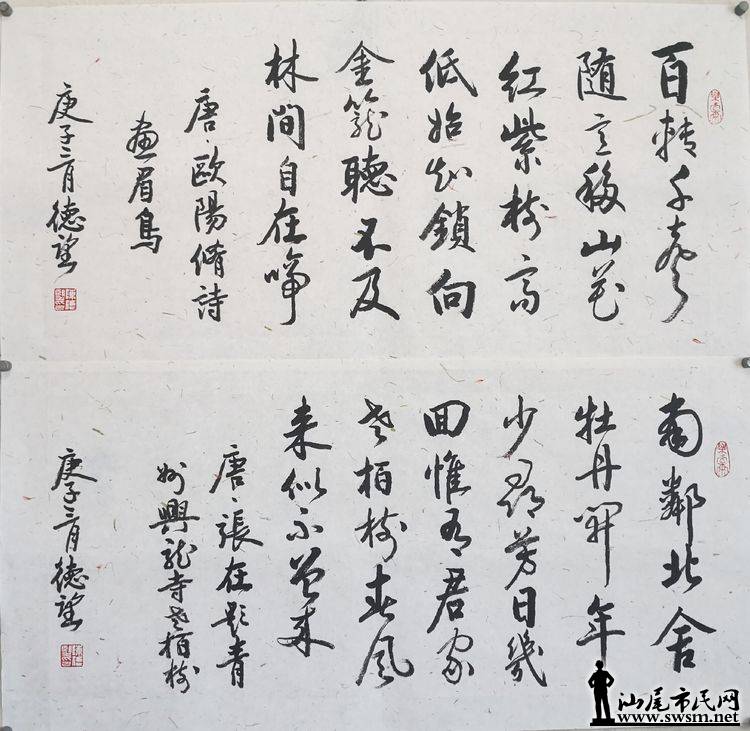 百轉千聲
随意移山花
红紫樹高
低始知鎖向
金籠聽不及
林間自在啼
唐、歐陽脩詩
畫眉鳥
庚子三月德望
南鄰北舍
牡丹開年
少尋芳日幾
回惟有君家
老柏樹春風
来似不曾来
唐、張在題青
州興龍寺老柏樹
庚子三月德望
汕尾市民网
www.swsm.net